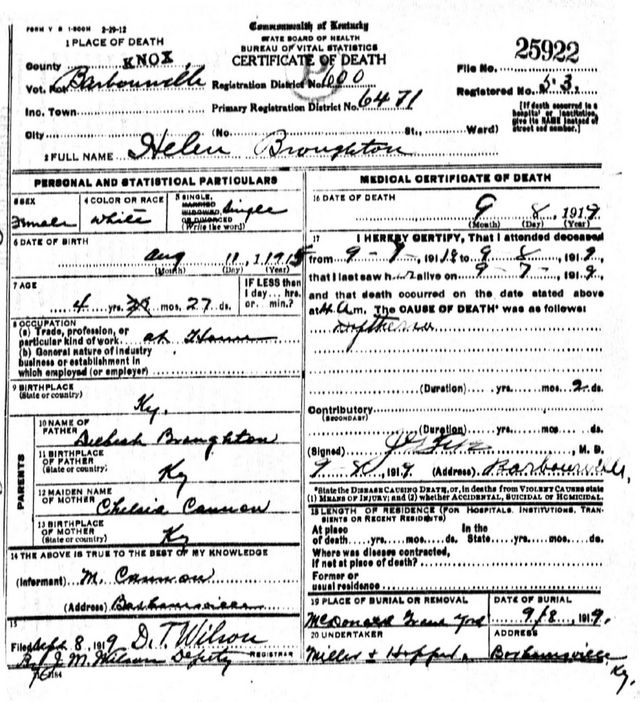 FORM V S 1-500M 2-29-12
Commonwealth of Kentucky
STATE BOARD OF HEALTH
BUREAU OF VITAL STATISTICS
CERTIFICATE OF DEATH
1 PLACE OF DEATH
County KNOX
Vot. Barbourville
Inc. Town
City
Registration District No. 600
Primary Registration District No. 6471
(No. St., Ward)
File No. 25922
Registered No. 53
[If death occurred in a hospital or institution, give its NAME instead of street and number.]
2 FULL NAME Helen Broughton
PERSONAL AND STATISTICAL PARTICULARS
3 SEX
Female
4 COLOR OR RACE
White
5 SINGLE, MARRIED WIDOWED, OR DIVORCED (Write the word)
Single
6 DATE OF BIRTH
Aug 11, 1915
(Month) (Day) (Year)
7 AGE
4 yrs. mos. 27 ds.
IF LESS than 1 day... hrs. or min.?
8 OCCUPATION
(a) Trade, profession, or particular kind of work at Home
(b) General nature of industry business or establishment in which employed (or employer)
9 BIRTHPLACE
(State or country)
Ky.
PARENTS
10 NAME OF FATHER
Broughton
11 BIRTHPLACE OF FATHER
(State or country)
Ky
12 MAIDEN NAME OF MOTHER
Cannon
13 BIRTHPLACE OF MOTHER
(State or country)
Ky
14 THE ABOVE IS TRUE TO THE BEST OF MY KNOWLEDGE
(Informant) M. Cannon
(Address)
15
Filed Sept 8, 1919 D. T. Wilson
REGISTRAR
By J M Wilson Deputy
MEDICAL CERTIFICATE OF DEATH
16 DATE OF DEATH
9 8, 1919
(Month) (Day) (Year)
17 I HEREBY CERTIFY, That I attended deceased
from 9-7-, 1919 to 9 8, 1919
that I last saw her alive on 9-7-, 1919
and that death occurred on the date stated above
at 4 a m. The CAUSE OF DEATH* was as follows:
Diptheria
(Duration) yrs. mos. 2 ds.
Contributory
(SECONDARY)
(Duration) yrs. mos. ds.
(Signed) , M. D.
9-8, 1919 (Address) Barbourville
*State the DISEASE CAUSING DEATH, or, in deaths from VIOLENT CAUSES state
(1) MEANS OF INJURY; and (2) whether ACCIDENTAL, SUICIDAL or HOMICIDAL.
18 LENGTH OF RESIDENCE (FOR HOSPITALS, INSTITUTIONS, TRANSIENTS OR RECENT RESIDENTS)
At place of death yrs. mos. ds. In the State yrs. mos. ds.
Where was disease contracted, if not at place of death?
Former or usual residence
19 PLACE OF BURIAL OR REMOVAL
McDonald Grave Yard
DATE OF BURIAL
9/8, 1919
20 UNDERTAKER
Miller &
ADDRESS
Ky.